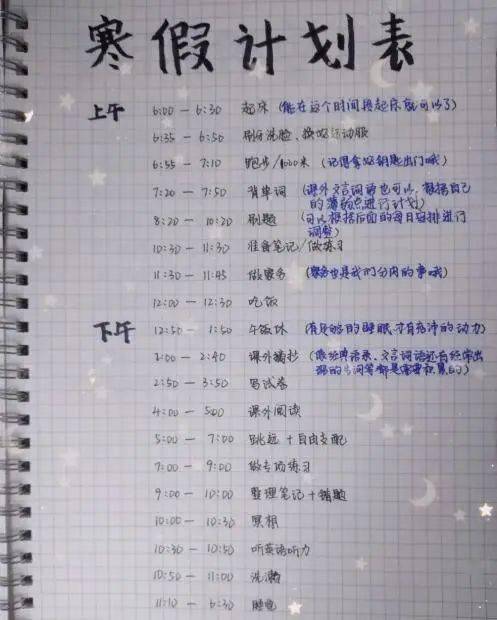 寒假计划表
上午 6:00 — 6:30 起床 (能在这个时间段起床就可以了)
6:35 — 6:50 刷牙洗脸、换好运动服
6:55 — 7:10 跑步/1000米 (记得拿好钥匙出门哦)
7:20 — 7:50 背单词 (课外文言词语也可以,根据自己
的薄弱点进行计划)
8:20 — 10:20 刷题 (可以根据后面的每日安排进行
调整)
10:30 — 11:30 准备笔记/做练习
11:30 — 11:45 做家务 (家务也是我们分内的事哦)
12:00 — 12:30 吃饭
下午 12:50 — 1:50 午休 (有足够的睡眠,才有充沛的动力)
2:00 — 2:40 课外摘抄 (像经典语录、文言词语还有经常出
现的生词等都是需要积累的)
2:50 — 3:50 写试卷
4:00 — 5:00 课外阅读
5:00 — 7:00 跳远+自由支配
7:00 — 9:00 做专项练习
9:00 — 10:00 整理笔记+错题
10:00 — 10:30 冥想
10:30 — 10:50 听英语听力
10:50 — 11:00 洗漱
11:10 — 6:30 睡觉